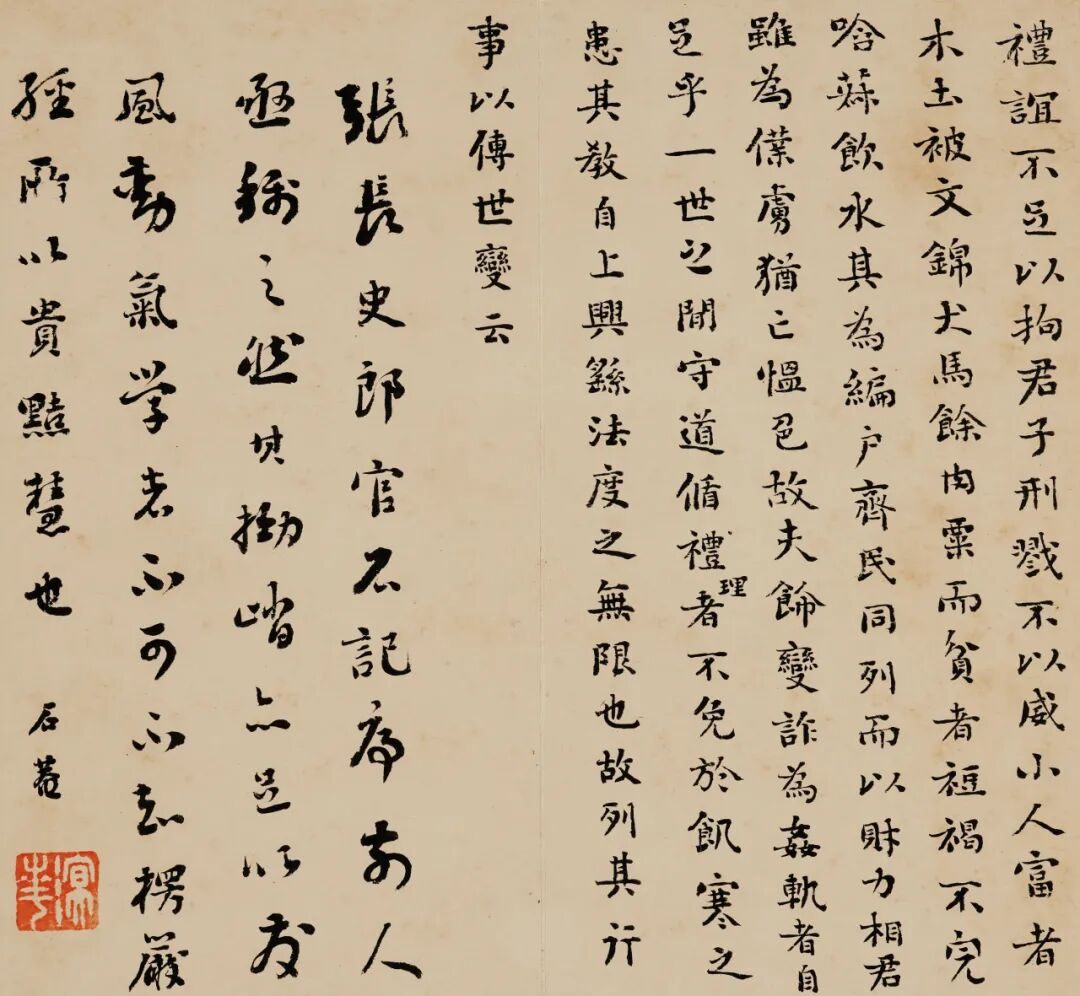 禮誼不足以拘君子刑戮不以威小人富者
木土被文錦犬馬餘肉粟而貧者裋褐不完
唅菽飲水其為編户齊民同列而以財力相君
雖為僕虜猶亡慍色故夫飾變詐為姦軌者自
足乎一世之間守道循禮理者不免於飢寒之
患其教自上興繇法度之無限也故列其行
事以傳世變云
張長史郎官石記為前人
亟稱之然其拗峭亦足以發
風動氣学者不可不知楞嚴
經所以貴黠慧也 石菴